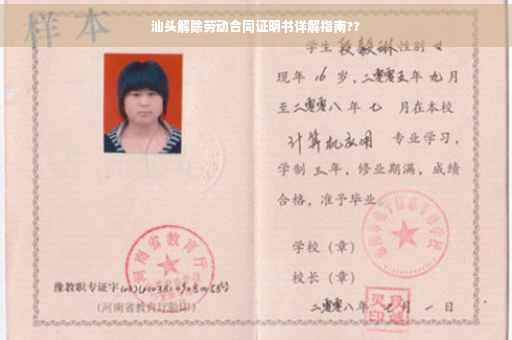 汕头解除劳动合同证明书详解指南??
样本
学生段毅琳性别女
现年16岁，二零零五年九月
至二零零八年七月在本校
计算机应用 专业学习，
学制三年，修业期满，成绩
合格，准予毕业。
学校（章）
校长（章）
二零零八年七月一日
河南省教育厅
豫教职专证字
（河南省教育厅验印）